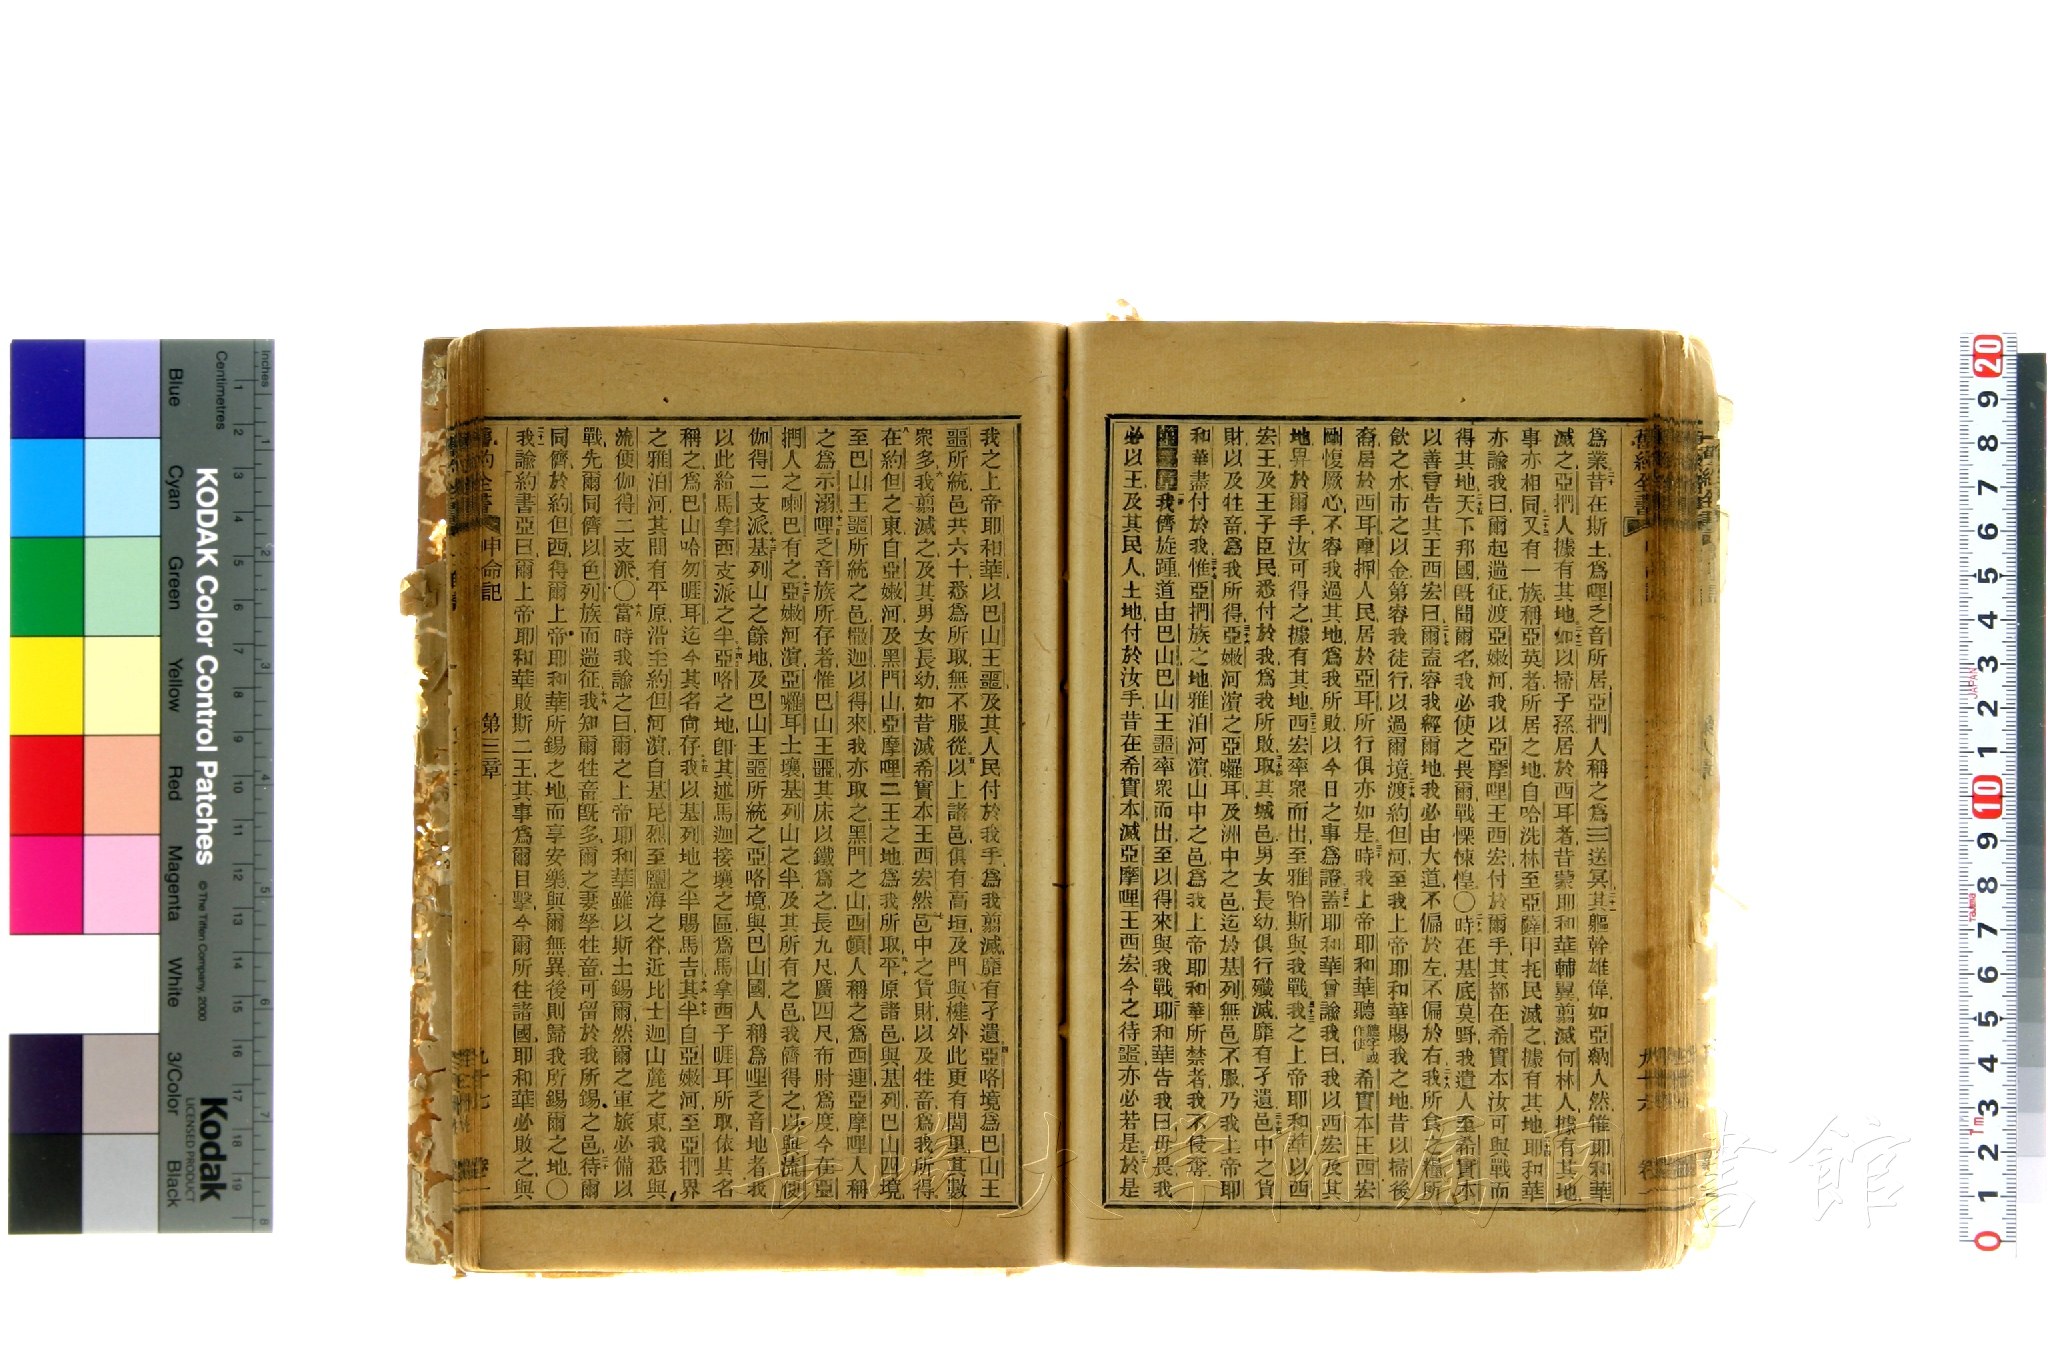 爲業昔在斯土爲哩乏音所居亞捫人稱之爲三送冥其軀幹雄偉如亞納人然惟耶和華
滅之亞捫人據有其地如以掃子孫居於西耳者昔蒙耶和華輔翼翦滅何林人據有其地
事亦相同又有一族稱亞英者所居之地自哈洗林至亞薩甲托民滅之據有其地耶和華
亦諭我曰爾起遄征渡亞嫩河我以亞摩哩王西宏付於爾手其都在希實本汝可與戰而
得其地天下邦國旣聞爾名我必使之畏爾戰慄悚惶〇時在基底莫野我遣人至希實本
以善言告其王西宏曰爾盍容我經爾地我必由大道不偏於左不偏於右我所食之糧所
飲之水市之以金第容我徒行以過爾境渡約但河至我上帝耶和華賜我之地昔以掃後
裔居於西耳摩押人民居於亞耳所行俱亦如是時我上帝耶和華聽聽字或作使希實本王西宏
剛愎厥心不容我過其地爲我所敗以今日之事爲證蓋耶和華曾諭我曰我以西宏及其
地畀於爾手汝可得之據有其地西宏率衆而出至雅哈斯與我戰我之上帝耶和華以西
宏王及王子臣民悉付於我爲我所敗取其城邑男女長幼俱行殲滅靡有孑遺邑中之貨
財以及牲畜爲我所得亞嫩河濱之亞囉耳及洲中之邑迄於基列無邑不服乃我上帝耶
和華盡付於我惟亞捫族之地雅泊河濱山中之邑爲我上帝耶和華所禁者我不侵奪
第三章我儕旋踵道由巴山巴山王噩率衆而出至以得來與我戰耶和華告我曰毋畏我
必以王及其民人土地付於汝手昔在希實本滅亞摩哩王西宏今之待噩亦必若是於是
我之上帝耶和華以巴山王噩及其人民付於我手爲我翦滅靡有孑遺亞咯境爲巴山王
噩所統邑共六十悉爲所取無不服從以上諸邑俱有高垣及門與楗外此更有閭里其數
衆多我翦滅之及其男女長幼如昔滅希實本王西宏然邑中之貨財以及牲畜爲我所得
在約但之東自亞嫩河及黑門山亞摩哩二王之地爲我所取平原諸邑與基列巴山四境
至巴山王噩所統之邑撒迦以得來我亦取之黑門之山西頓人稱之爲西連亞摩哩人稱
之爲示溺哩乏音族所存者惟巴山王噩其床以鐵爲之長九尺廣四尺布肘爲度今在亞
捫人之喇巴有之亞嫩河濱亞囉耳土壤基列山之半及其所有之邑我儕得之以與流便
伽得二支派基列山之餘地及巴山王噩所統之亞咯境與巴山國人稱爲哩乏音地者我
以此給馬拿西支派之半亞咯之地卽其述馬迦接壤之區爲馬拿西子睚耳所取依其名
稱之爲巴山哈勿睚耳迄今其名尙存我以基列地之半賜馬吉其半自亞嫩河至亞捫界
之雅泊河其間有平原沿至約但河濱自基尼烈至鹽海之谷近比士迦山麓之東我悉與
流便伽得二支派〇當時我諭之曰爾之上帝耶和華雖以斯土錫爾然爾之軍旅必備以
戰先爾同儕以色列族而遄征我知爾牲畜旣多爾之妻孥牲畜可留於我所錫之邑待爾
同儕於約但西得爾上帝耶和華所錫之地而享安樂與爾無異後則歸我所錫爾之地〇
我諭約書亞曰爾上帝耶和華敗斯二王其事爲爾目擊今爾所往諸國耶和華必敗之與
舊約全書 申命記 第三章 九十七
長崎大学附属図書館
KODAK Color Control Patches
© The Tiffen Company, 2000
Kodak
LICENSED PRODUCT
Inches
Centimetres
Blue
Cyan
Green
Yellow
Red
Magenta
White
3/Color
Black
JAPAN